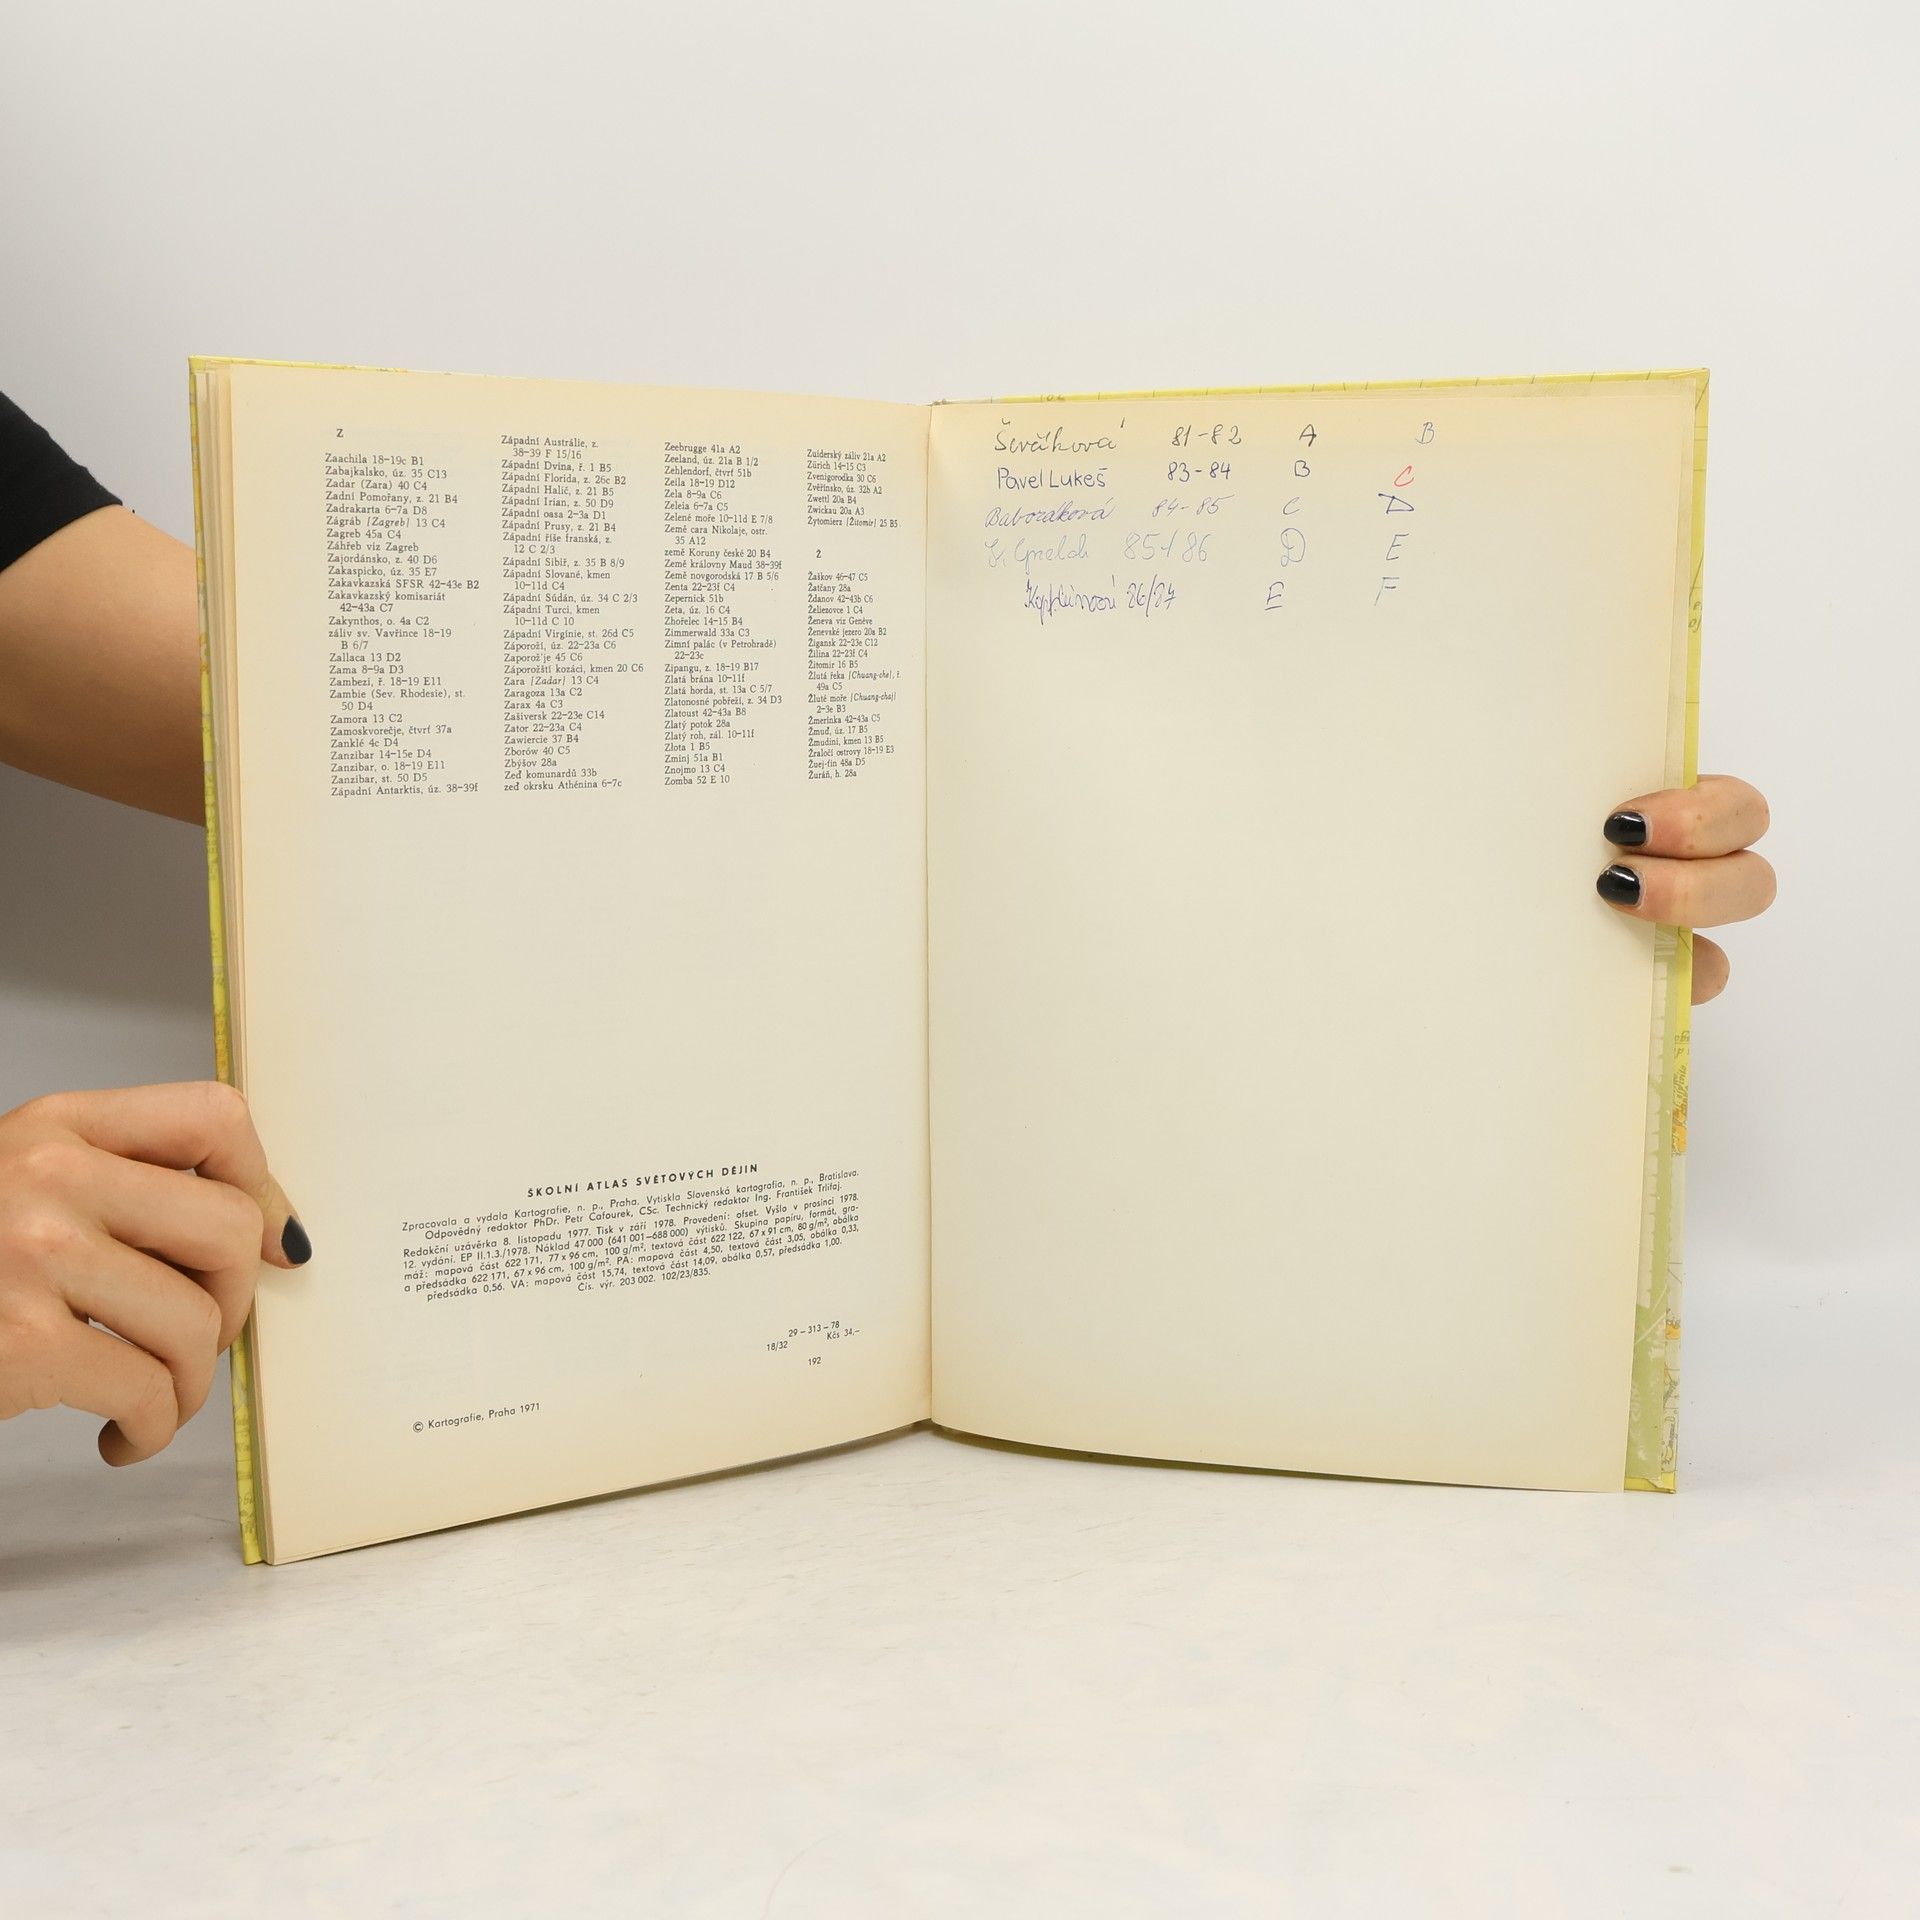 Z
Zaachila 18-19c B1
Zabajkalsko, úz. 35 C13
Zadar (Zara) 40 C4
Zadní Pomořany, z. 21 B4
Zadrakarta 6-7a D8
Zágráb [Zagreb] 13 C4
Zagreb 45a C4
Záhřeb viz Zagreb
Zajordánsko, z. 40 D6
Zakaspicko, úz. 35 E7
Zakavkazská SFSR 42-43e B2
Zakavkazský komisariát
42-43a C7
Zakynthos, o. 4a C2
záliv sv. Vavřince 18-19
B 6/7
Zallaca 13 D2
Zama 8-9a D3
Zambezi, ř. 18-19 E11
Zambie (Sev. Rhodesie), st.
50 D4
Zamora 13 C2
Zamoskvorečje, čtvrť 37a
Zanklé 4c D4
Zanzibar 14-15e D4
Zanzibar, o. 18-19 E11
Zanzibar, st. 50 D5
Západní Antarktis, úz. 38-39f
Západní Austrálie, z.
38-39 F 15/16
Západní Dvina, ř. 1 B5
Západní Florida, z. 26c B2
Západní Halič, z. 21 B5
Západní Irian, z. 50 D9
Západní oasa 2-3a D1
Západní Prusy, z. 21 B4
Západní říše franská, z.
12 C 2/3
Západní Sibiř, z. 35 B 8/9
Západní Slované, kmen
10-11d C4
Západní Súdán, úz. 34 C 2/3
Západní Turci, kmen
10-11d C 10
Západní Virginie, st. 26d C5
Záporoží, úz. 22-23a C6
Zaporož'je 45 C6
Záporožští kozáci, kmen 20 C6
Zara [Zadar] 13 C4
Zaragoza 13a C2
Zarax 4a C3
Zašiversk 22-23e C14
Zator 22-23a C4
Zawiercie 37 B4
Zborów 40 C5
Zbýšov 28a
Zeď komunardů 33b
zeď okrsku Athénina 6-7c
Zeebrugge 41a A2
Zeeland, úz. 21a B 1/2
Zehlendorf, čtvrť 51b
Zeila 18-19 D12
Zela 8-9a C6
Zeleia 6-7a C5
Zelené moře 10-11d E 7/8
Země cara Nikolaje, ostr.
35 A12
země Koruny české 20 B4
Země královny Maud 38-39f
Země novgorodská 17 B 5/6
Zenta 22-23f C4
Zepernick 51b
Zeta, úz. 16 C4
Zhořelec 14-15 B4
Zimmerwald 33a C3
Zimní palác (v Petrohradě)
22-23c
Zipangu, z. 18-19 B17
Zlatá brána 10-11f
Zlatá horda, st. 13a C 5/7
Zlatonosné pobřeží, z. 34 D3
Zlatoust 42-43a B8
Zlatý potok 28a
Zlatý roh, zál. 10-11f
Złota 1 B5
Zminj 51a B1
Znojmo 13 C4
Zomba 52 E 10
Zuiderský záliv 21a A2
Zürich 14-15 C3
Zvenigorodka 30 C6
Zvěřinsko, úz. 32b A2
Zwettl 20a B4
Zwickau 20a A3
Żytomierz [Žitomir] 25 B5
Ž
Žaškov 46-47 C5
Žatčany 28a
Ždanov 42-43b C6
Želiezovce 1 C4
Ženeva viz Genève
Ženevské jezero 20a B2
Žigansk 22-23e C12
Žilina 22-23f C4
Žitomir 16 B5
Žlutá řeka [Chuang-che], ř.
49a C5
Žluté moře [Chuang-chaj]
2-3e B3
Žmerinka 42-43a C5
Žmuď, úz. 17 B5
Žmudini, kmen 13 B5
Žraločí ostrovy 18-19 E3
Žuej-fin 48a D5
Žuráň, h. 28a
ŠKOLNÍ ATLAS SVĚTOVÝCH DĚJIN
Zpracovala a vydala Kartografie, n. p., Praha. Vytiskla Slovenská kartografia, n. p., Bratislava.
Odpovědný redaktor PhDr. Petr Čafourek, CSc. Technický redaktor Ing. František Trlifaj.
Redakční uzávěrka 8. listopadu 1977. Tisk v září 1978. Provedení: ofset. Vyšlo v prosinci 1978.
12. vydání. EP II.1.3./1978. Náklad 47 000 (641 001–688 000) výtisků. Skupina papíru, formát, gra-
máž: mapová část 622 171, 77 x 96 cm, 100 g/m², textová část 622 122, 67 x 91 cm, 80 g/m², obálka
a předsádka 622 171, 67 x 96 cm, 100 g/m². PA: mapová část 4,50, textová část 3,05, obálka 0,33,
předsádka 0,56. VA: mapová část 15,74, textová část 14,09, obálka 0,57, předsádka 1,00.
Čís. výr. 203 002. 102/23/835.
29 – 313 – 78
18/32 Kčs 34,–
192
© Kartografie, Praha 1971
Ševčíková 81-82 A B
Pavel Lukeš 83-84 B C
Baboráková 84-85 C D
85/86 D E
86/87 E F